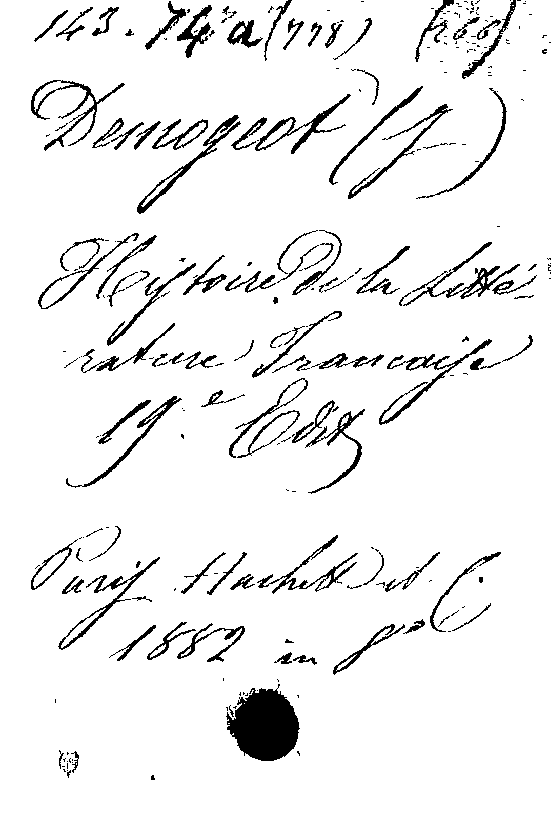 143. 74 a (778) (266)
Demogeot (J)
Histoire de la Litté-
rature Francaise
19.e Edit
Paris Hachette et C.
1882 in 8º